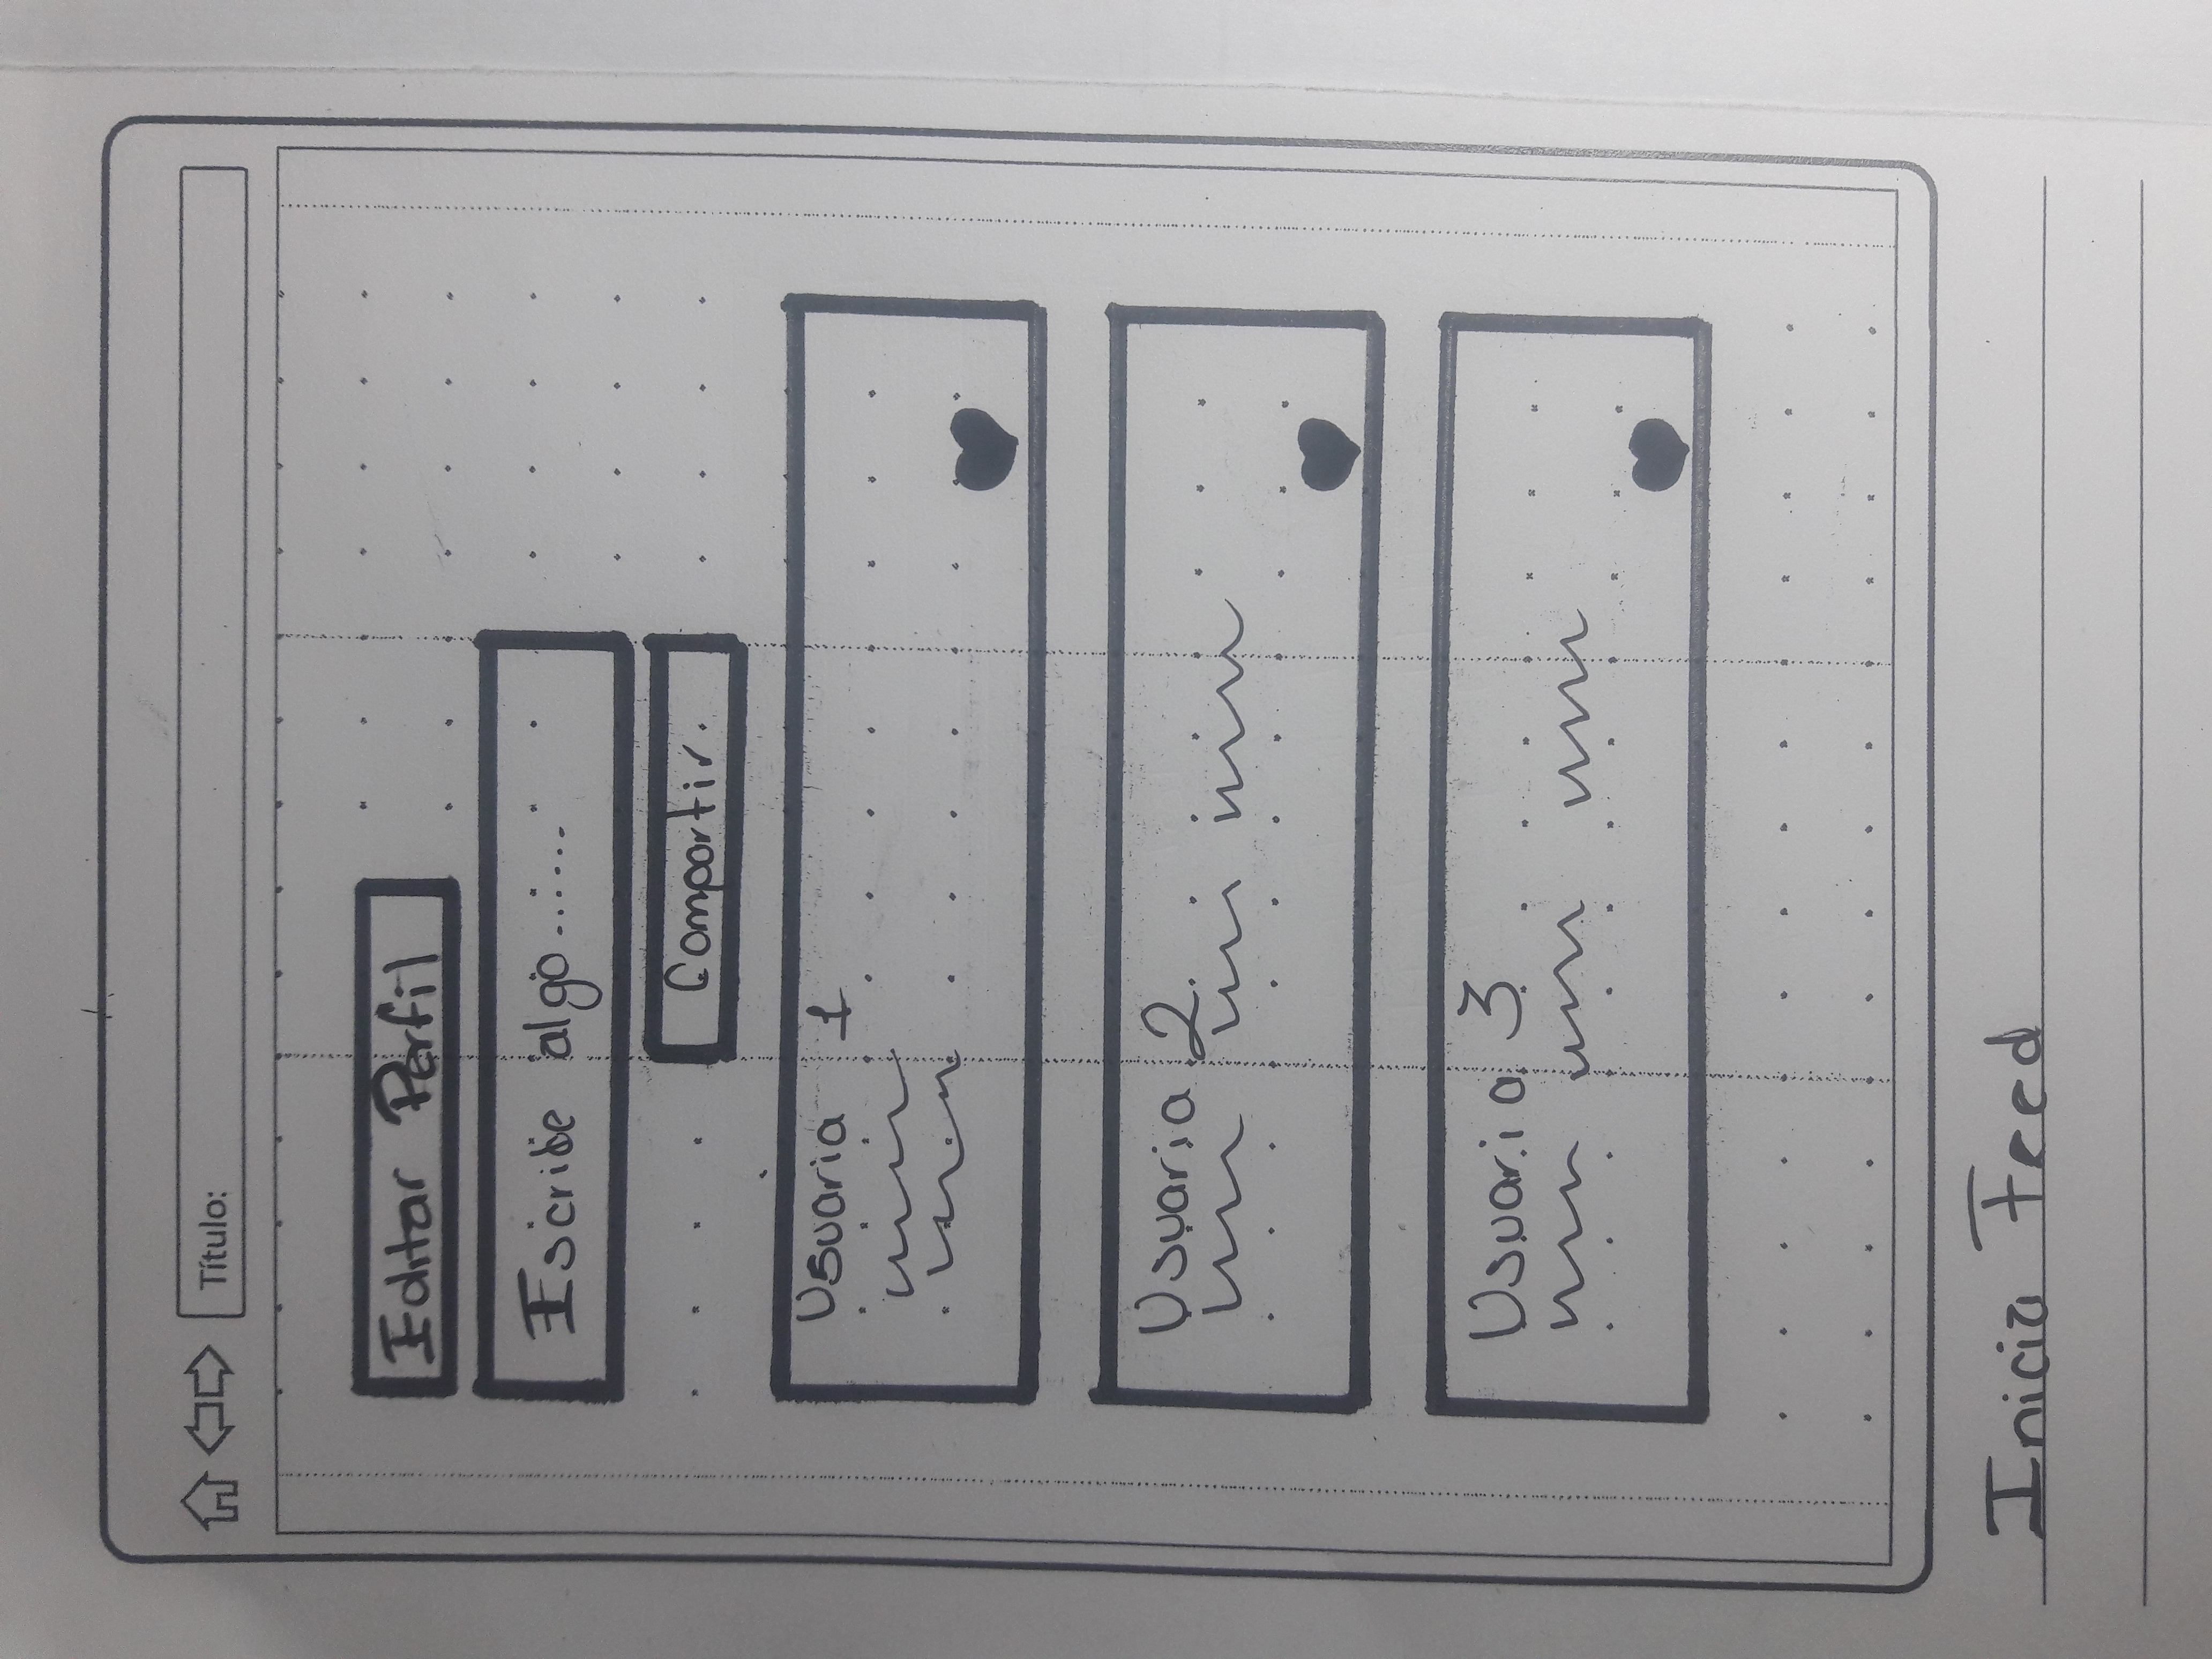 Título:
Editar Perfil
Escribe algo.......
Compartir.
Usuaria 1
Usuaria 2.
Usuaria 3
Inicio Feed